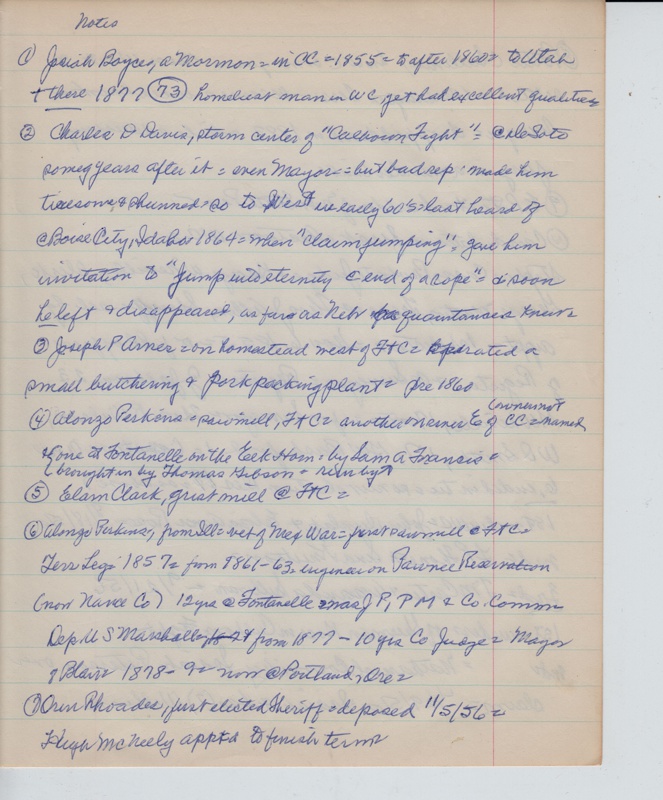 Notes
① Josiah Boyces, a Mormon = in CC = 1855 = to after 1860 = to Utah
+ there 1877 (73) homeliest man in WC yet had excellent qualities
② Charles D Davis, storm center of "Calhoun Fight" = @ DeSoto
some years after it = even Mayor = but bad rep. made him
tiresome & shunned = so to West in early 60's = last heard of
@ Boise City, Idaho = 1864 = when "claim jumping" = gave him
invitation to "jump into eternity @ end of a rope" = & soon
he left & disappeared, as far as Nebr quaintances knew =
③ Joseph P Arner = on homestead west of FtC = operated a
small butchering & pork packing plant = pre 1860
④ Alonzo Perkins = sawmill, FtC = another owner E of CC = (owner not named
& one at Fontanelle on the Elk Horn = by Sam A Francis =
(brought in by Thomas Gibson = run by
⑤ Elam Clark, grist mill @ FtC =
⑥ Alonzo Perkins, from Ill = vet of Mex War = first sawmill @ FtC =
Terr Legi 1857 = from 1861-63 = engineer on Pawnee Reservation
(now Nance Co) 12 yrs @ Fontanelle = was J P, P M & Co. Comm
Dep U S Marshall = from 1877 - 10 yrs Co Judge = Mayor
of Blair 1878-9 = now @ Portland, Ore =
⑦ Orin Rhoades, first elected Sheriff = deposed 11/5/56 =
Hugh McNeely apptd to finish term =